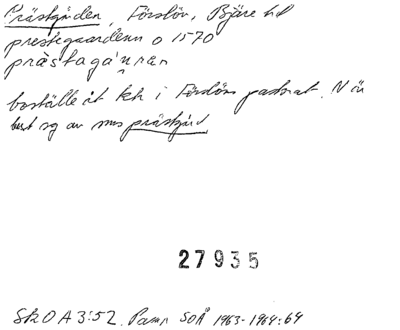 Prästgården, Förslöv, Bjäre hd
prestegaardenn o 1570
prästagá̊nran
boställe åt kh i Förslövs pastorat. N är
best sg av sms prästgård
27935
SkO A3:52. Pamp SOÅ 1963-1964:64